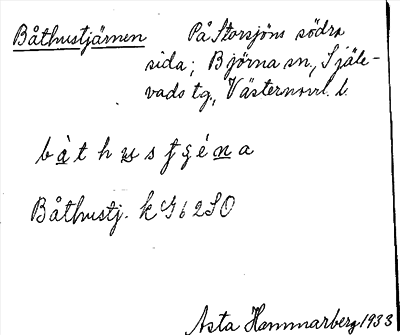 Båthustjärnen På Storsjöns södra
sida; Björna sn., Själe-
vads tg, Västernorrl. l.
bàthusțgéna
Båthustj. k G 62 SO
Asta Hammarberg 1933